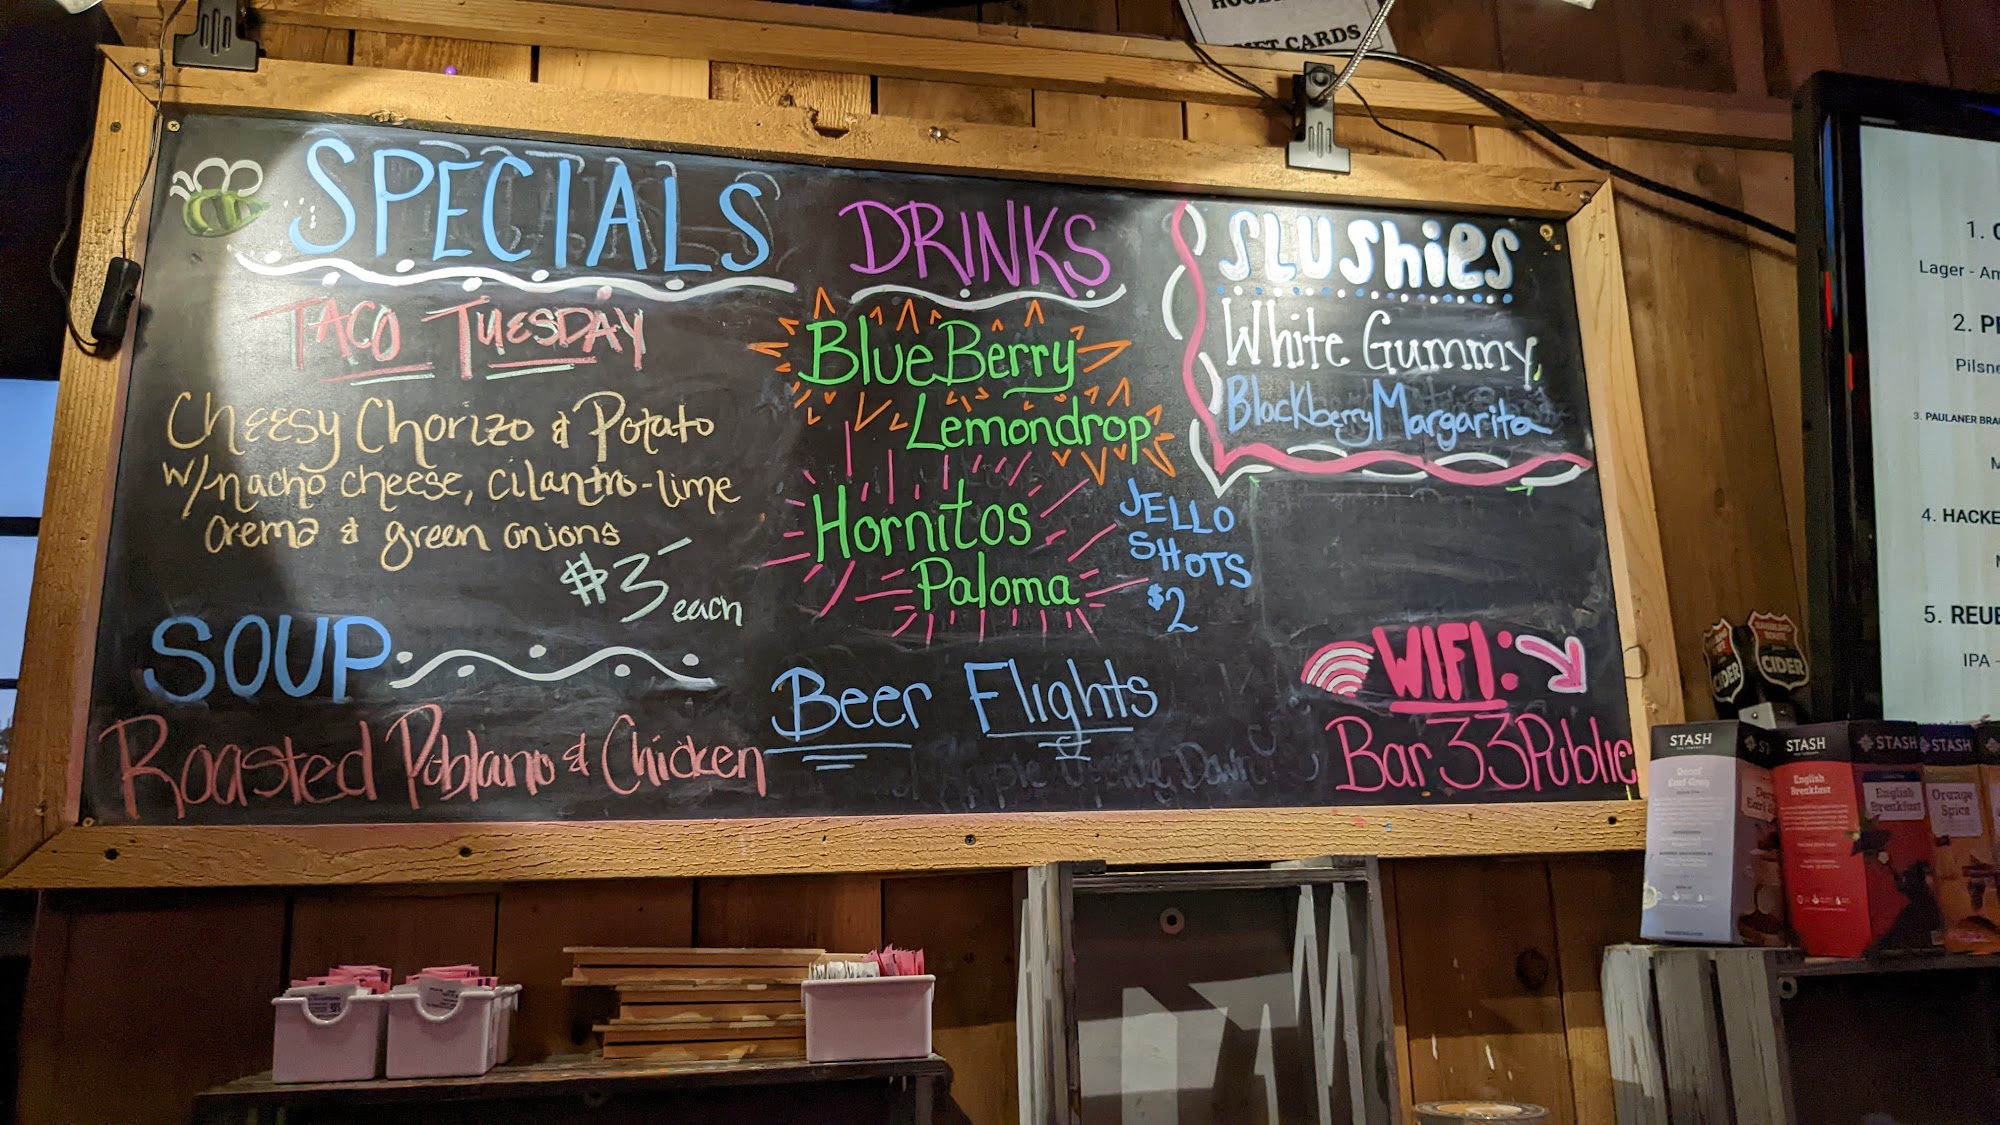 CARDS
SPECIALS
TACO TUESDAY
Cheesy Chorizo & Potato
w/nacho cheese, cilantro-lime
crema & green onions
$3 each
SOUP
Roasted Poblano & Chicken
DRINKS
BlueBerry
Lemondrop
Hornitos
Paloma
JELLO
SHOTS
$2
Beer Flights
SLUShiES
White Gummy,
Blackberry Margarita
WIFI:
Bar33Public
1.
Lager -
2.
3. PAULANER
4.
5.
IPA -
CIDER
CIDER
STASH
STASH
STASH
STASH
English
Breakfast
English
Breakfast
Orange
Spice